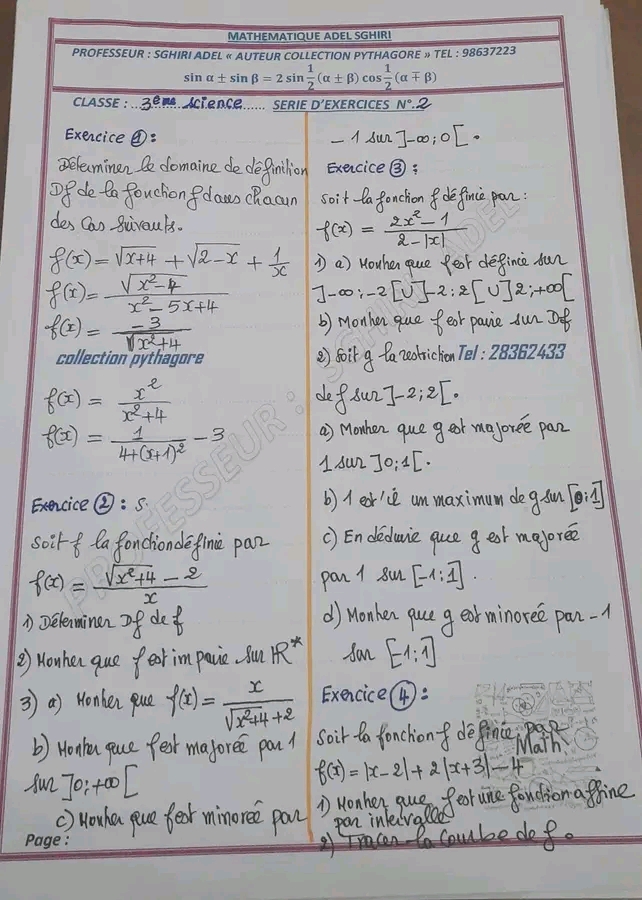 MATHEMATIQUE ADEL SGHIRI
PROFESSEUR : SGHIRI ADEL « AUTEUR COLLECTION PYTHAGORE » TEL : 98637223
sin α ± sin β = 2 sin 1/2 (α ± β) cos 1/2 (α ∓ β)
CLASSE : 3ème science SERIE D'EXERCICES N°.2
Exercice ① :
Déterminer le domaine de définition
Df de la fonction f dans chacun
des cas suivants.
f(x) = √(x+4) + √(2-x) + 1/x
f(x) = √(x²-4) / (x² - 5x + 4)
f(x) = -3 / √(x²+4)
collection pythagore
f(x) = x² / (x²+4)
f(x) = 1 / (4+(x+1)²) - 3
Exercice ② : s.
Soit f la fonction définie par
f(x) = (√(x²+4) - 2) / x
1) Déterminer Df de f
2) Monher que f est impaire sur IR*
3) a) Monher que f(x) = x / (√(x²+4) + 2)
b) Monher que f est majorée par 1
sur ]0;+∞[
c) Monher que f est minorée par
Page :
-1 sur ]-∞;0[.
Exercice ③ :
Soit la fonction f définie par :
f(x) = (2x²-1) / (2-|x|)
1) a) Monher que f est définie sur
]-∞;-2[∪]-2;2[∪]2;+∞[
b) Monher que f est paire sur Def
2) Soit g la restriction Tel : 28362433
de f sur ]-2;2[.
a) Monher que g est majorée par
1 sur ]0;1[.
b) 1 est'il un maximum de g sur [0;1]
c) En déduire que g est majorée
par 1 sur [-1;1].
d) Monher que g est minorée par -1
sur [-1;1]
Exercice ④ :
Soit la fonction f définie par
Math
f(x) = |x-2| + 2|x+3| - 4
1) Monher que f est une fonction affine
par intervalle
2) Tracer la courbe de f.
PROFESSEUR : SGHIRI ADEL